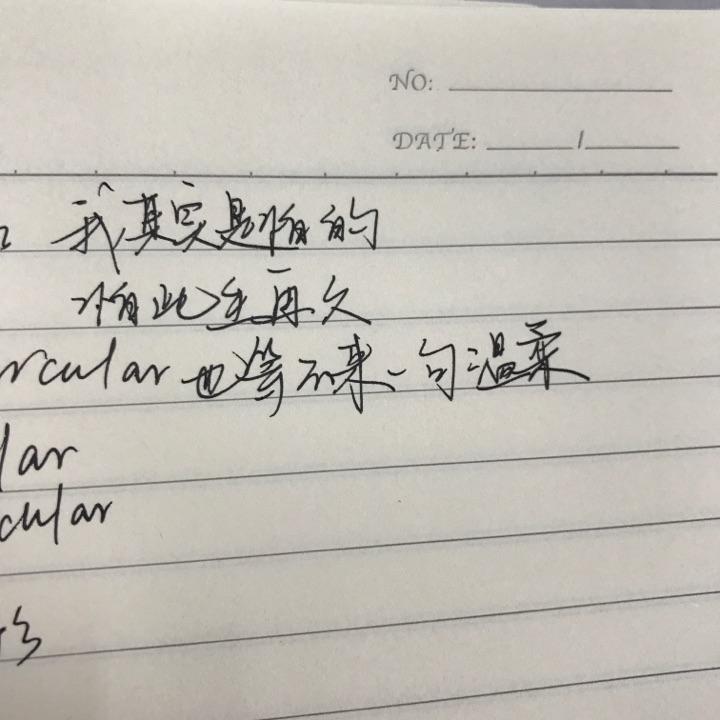 NO:
DATE: /
我其实是怕的
怕此生再久
rcular 也等不来一句温柔
lar
cular